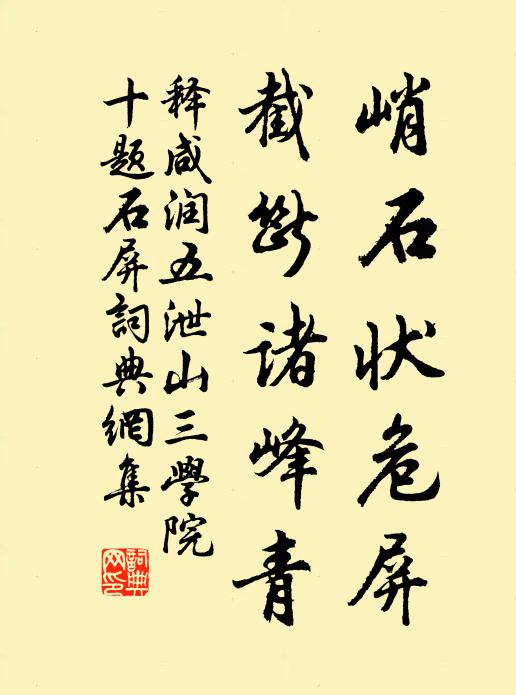 峭石状危屏
截斷诸峰青
释咸润五泄山三學院
十题石屏詞典網集
詞典网印